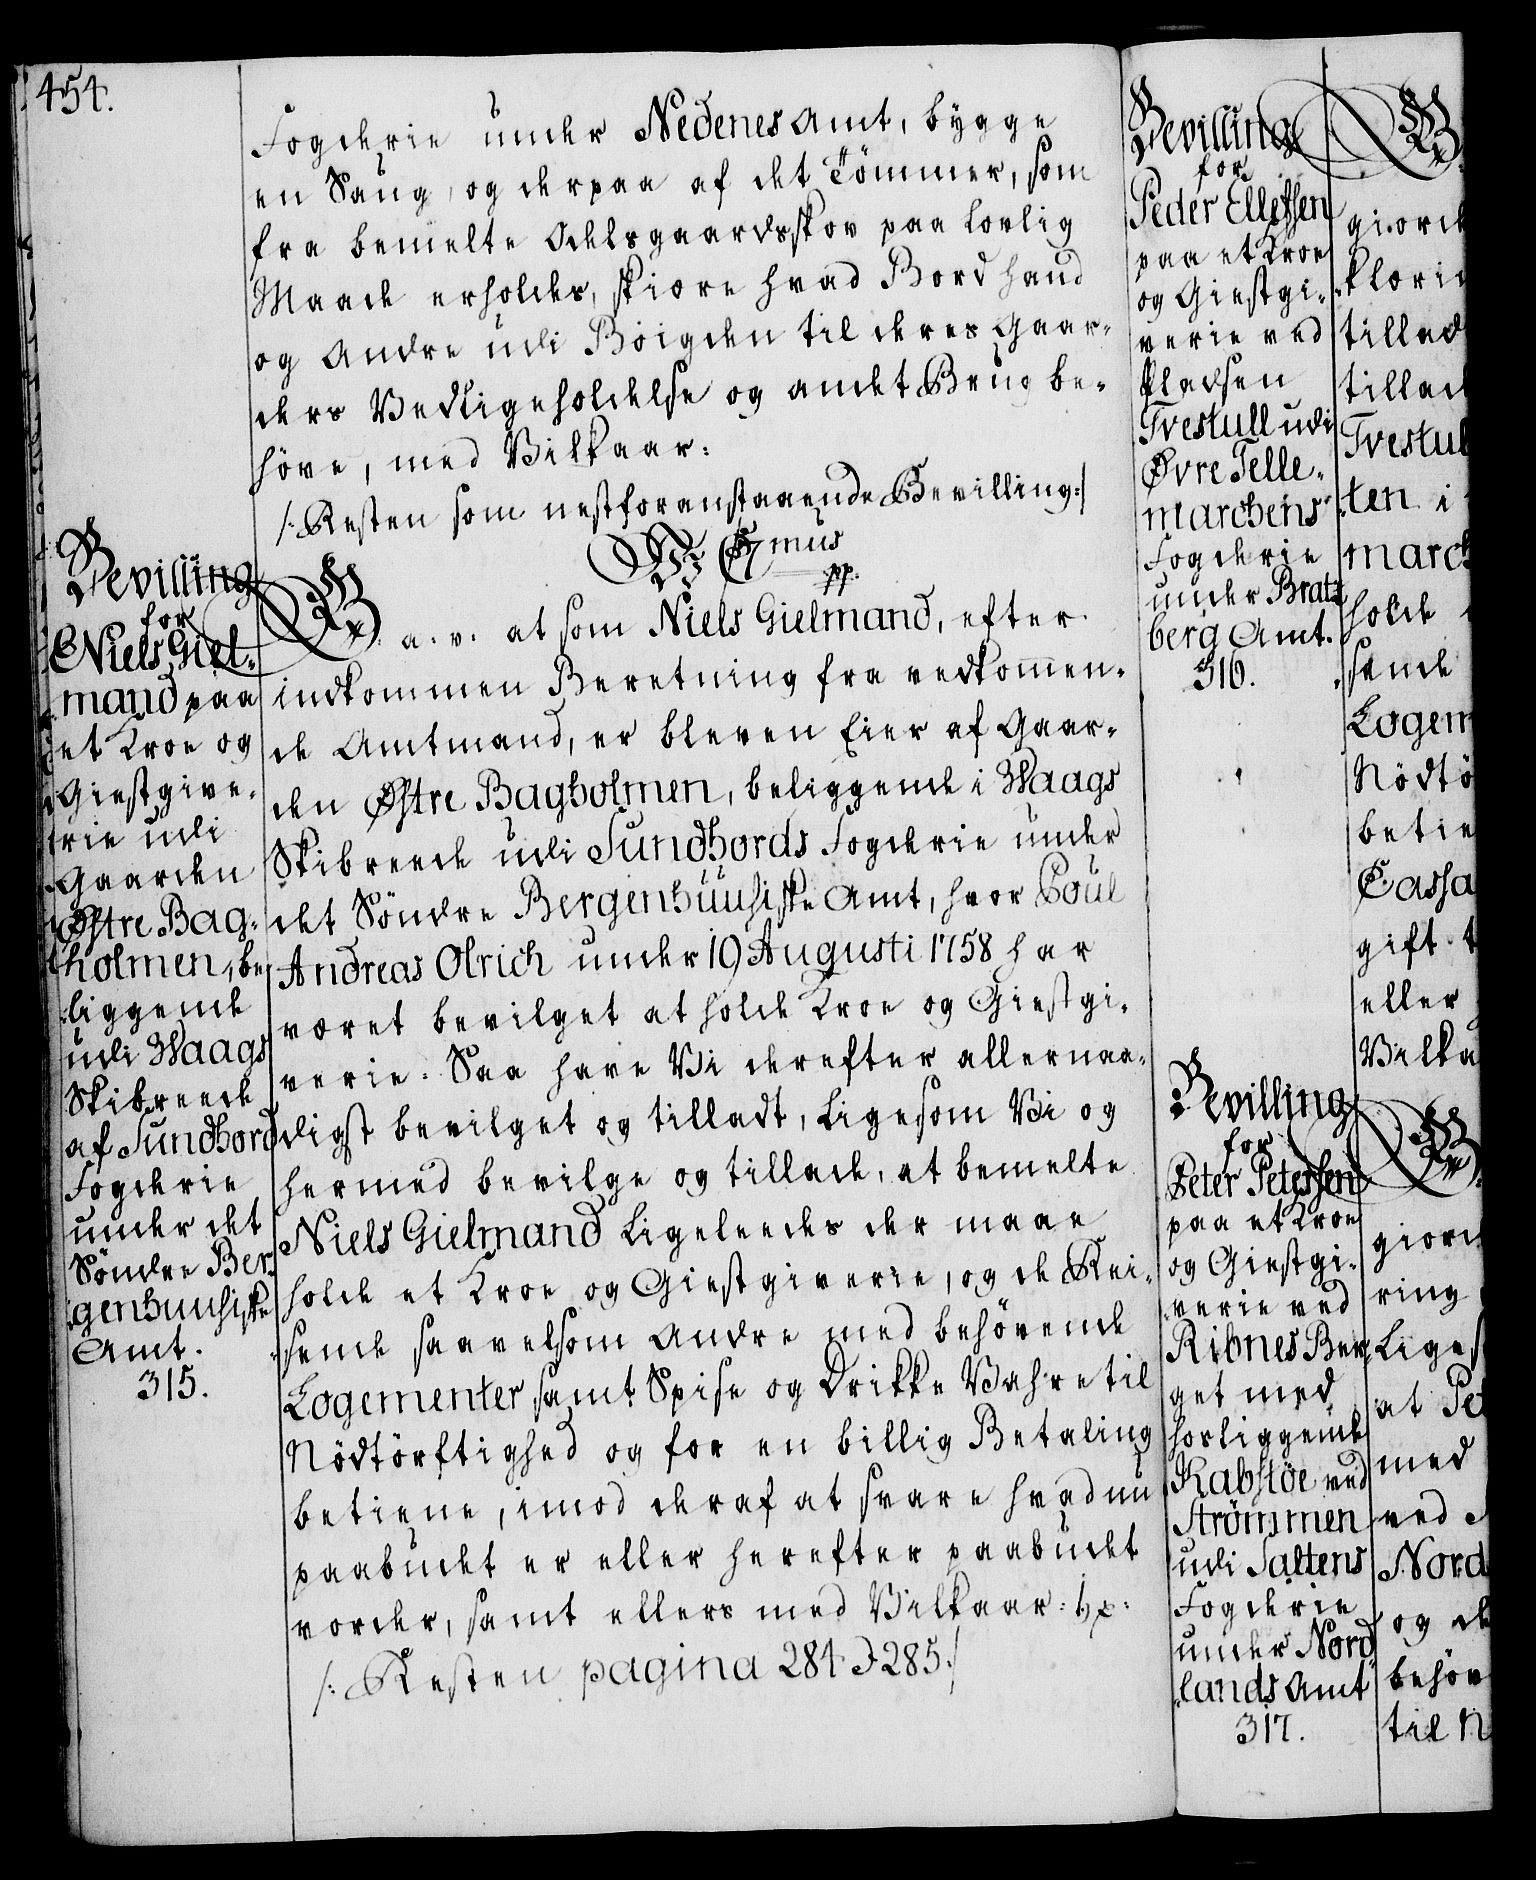 454.
Fogderie under Nedenes Amt, bygge
en Saug, og derpaa af det Tömmer, som
fra bemelte Odelsgaardsskov paa lovlig
Maade erholdes, skiære hvad Bord hand
og Andre udi Böigden til deres Gaar-
ders Vedligeholdelse og andet Brug be-
höve, med Vilkaar:
/: Resten som nestforanstaaende Bevilling:/
Bevilling
for
Niels Giel-
mand paa
et Kroe og
Giestgive-
rie udi
Gaarden
Østre Bag-
holmen, be-
liggende
udi Waags
Skibreede
af Sundhord
Fogderie
under det
Söndre Ber-
genhuusiske
Amt.
315.
a. v. at som Niels Gielmand, efter
indkommen Beretning fra vedkommen-
de Amtmand, er bleven Eier af Gaar-
den Østre Bagholmen, beliggende i Waags
Skibreede udi Sundhords Fogderie under
det Söndre Bergenhuusiske Amt, hvor Poul
Andreas Olrich under 19 Augusti 1758 har
været bevilget at holde Kroe og Giestgi-
verie. Saa have Vi derefter allernaa-
digst bevilget og tilladt, ligesom Vi og
hermed bevilge og tillade, at bemelte
Niels Gielmand ligeleedes der maae
holde et Kroe og Giestgiverie, og de Rei-
sende saavelsom Andre med behövende
Logementer samt Spise og Drikke Vahre til
Nödtörftighed og for en billig Betaling
betiene, imod deraf at svare hvad nu
paabudet er eller herefter paabudet
vorder, samt ellers med Vilkaar:
/: Resten pagina 284 & 285:/
Bevilling
for
Peder Ellefsen
paa et Kroe
og Giestgi-
verie ved
Pladsen
Tvestull udi
Øvre Telle-
marchens
Fogderie
under Brats
berg Amt.
316.
Bevilling
for
Peter Petersen
paa et Kroe
og Giestgi-
verie ved
Ribnes Ber-
get med
hosliggende
Kabstöe ved
Strömmen
udi Saltens
Fogderie
under Nord
lands Amt
317.
giord
tillad
tillad
Tvestul
ten i
march
holde
sende
Logem
Nödtö
betie
Cassa
gift
eller
Vilka
giord
ring
Liges
at Pet
med
ved
Nord
og de
behöv
til N